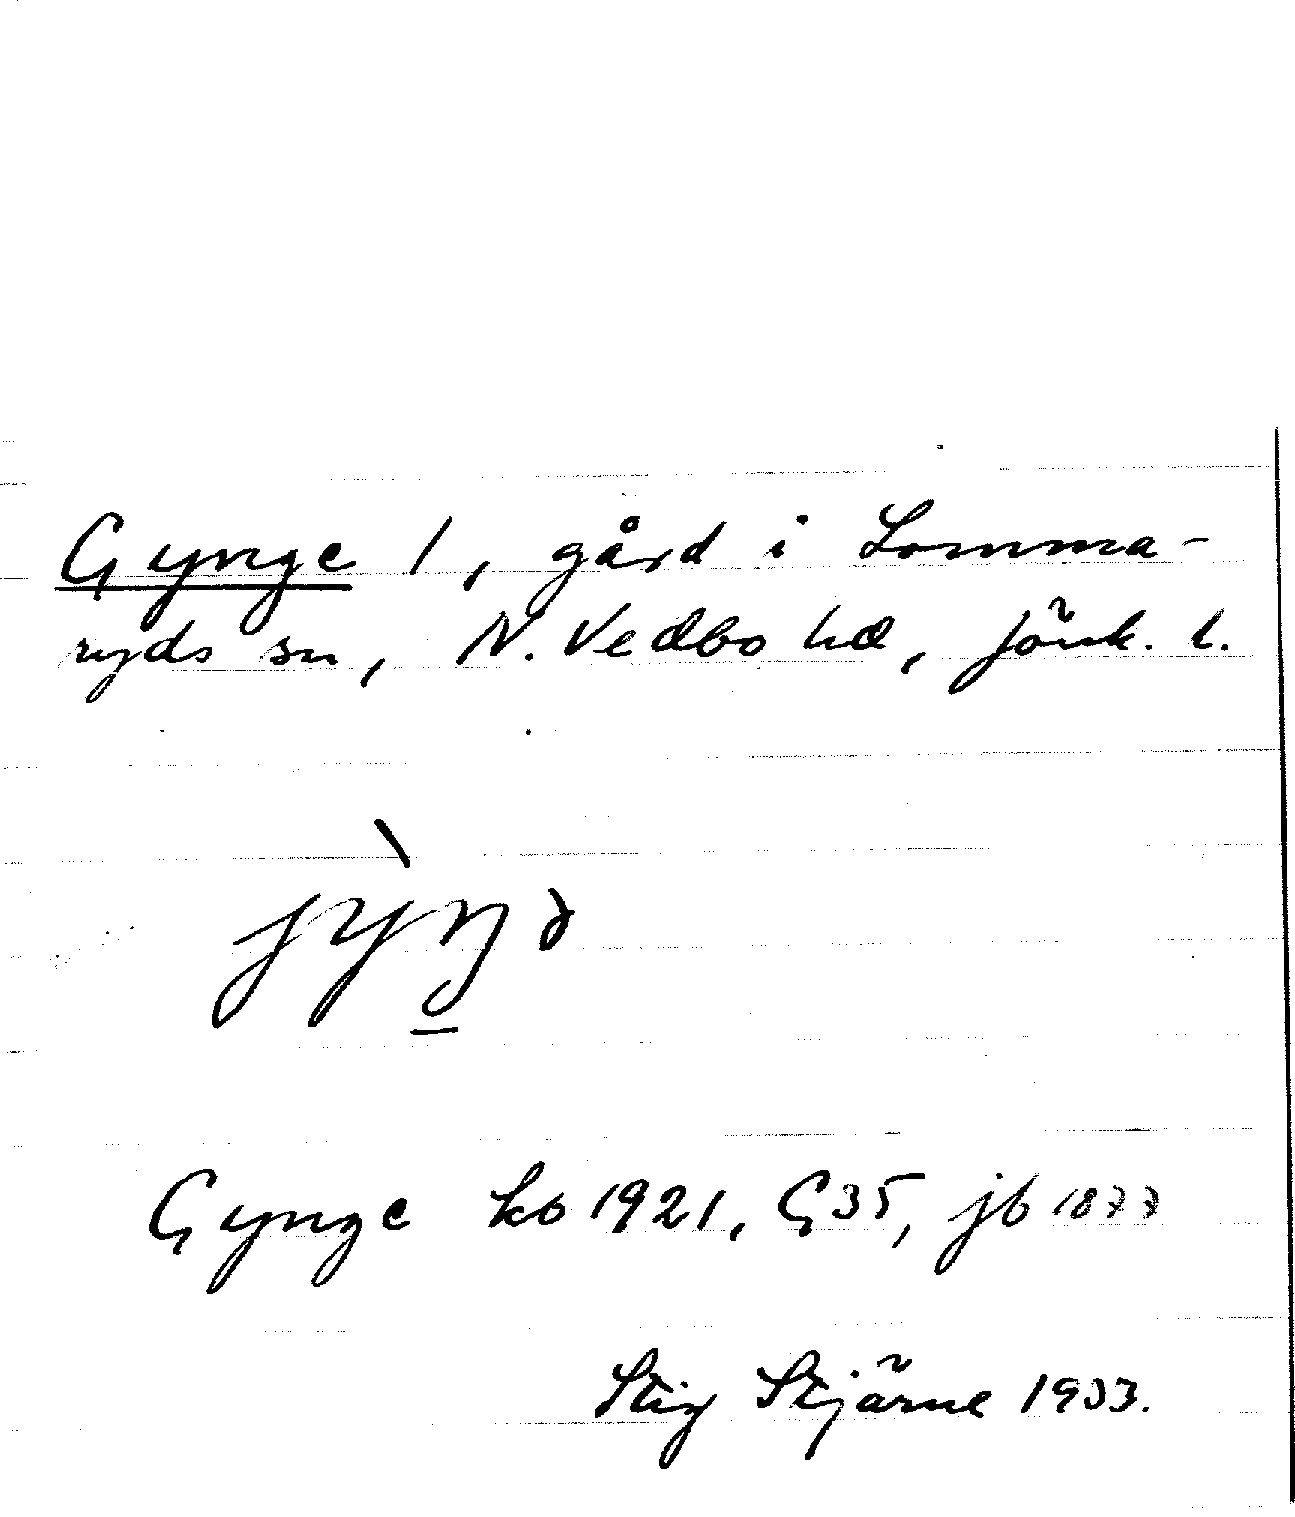 Gynge 1, gård i Lomma-
ryds sn, N. Vedbo hd, Jönk. l.
jỳŋ̠ə
Gynge kb 1921, G35, jb 1877
Stig Stjärne 1933.